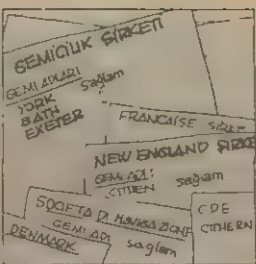 GEMİCİLİK ŞİRKETİ
GEMİ ADLARI
Sağlam
YORK
BATH
EXETER
FRANCAISE
NEW ENGLAND
GEMİ ADI:
CITHEN sağlam
SOCIETA DI NAVIGAZIONE
GEMİ ADI
DENMARK sağlam
CDE
CITHERN